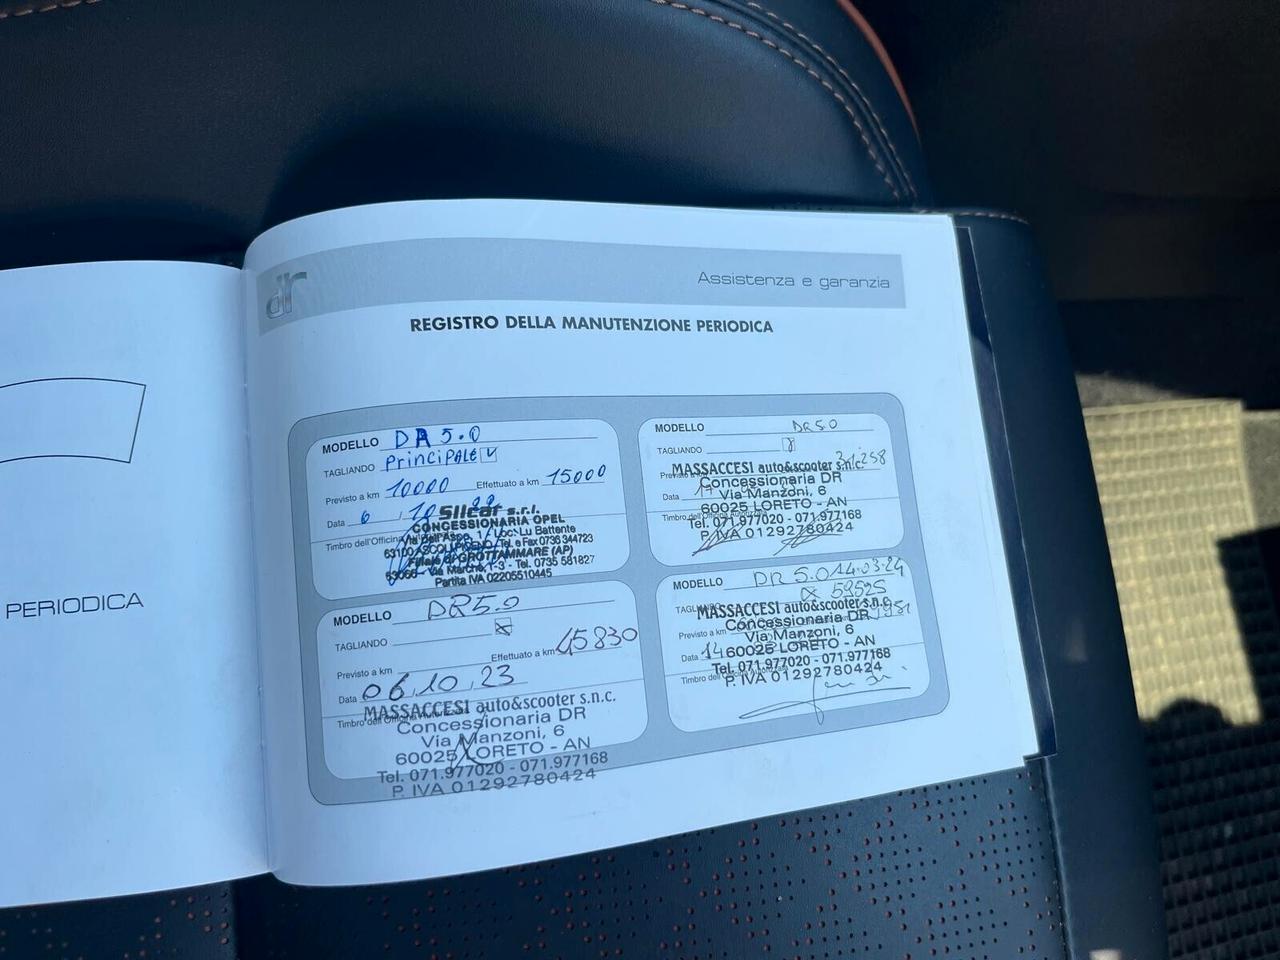 PERIODICA
dr
Assistenza e garanzia
REGISTRO DELLA MANUTENZIONE PERIODICA
MODELLO DR 5.0
TAGLIANDO PRINCIPALE V
Previsto a km 10000 Effettuato a km 15000
Data 6 10 22
Timbro dell'Officina
Silcar s.r.l.
CONCESSIONARIA OPEL
Via Dell'Aspo, 1 / Loc. Lu Battente
63100 ASCOLI PICENO Tel. e Fax 0736 344723
Filiale di GROTTAMMARE (AP)
63066 - Via Marche, 1-3 - Tel. 0735 581827
Partita IVA 02205510445
MODELLO DR5.0
TAGLIANDO X
Previsto a km Effettuato a km 45830
Data 06.10.23
Timbro dell'Officina Autorizzata
MASSACCESI auto&scooter s.n.c.
Concessionaria DR
Via Manzoni, 6
60025 LORETO - AN
Tel. 071.977020 - 071.977168
P. IVA 01292780424
MODELLO DR 5.0
TAGLIANDO
Previsto a km
MASSACCESI auto&scooter s.n.c.
Concessionaria DR
Data 17
Via Manzoni, 6
Timbro dell'Officina Autorizzata
60025 LORETO - AN
Tel. 071.977020 - 071.977168
P. IVA 01292780424
MODELLO DR 5.0 14.03.24
TAGLIANDO X 59525
MASSACCESI auto&scooter s.n.c.
Previsto a km
Concessionaria DR
Via Manzoni, 6
Data 14
60025 LORETO - AN
Tel. 071.977020 - 071.977168
Timbro dell'Officina
P. IVA 01292780424